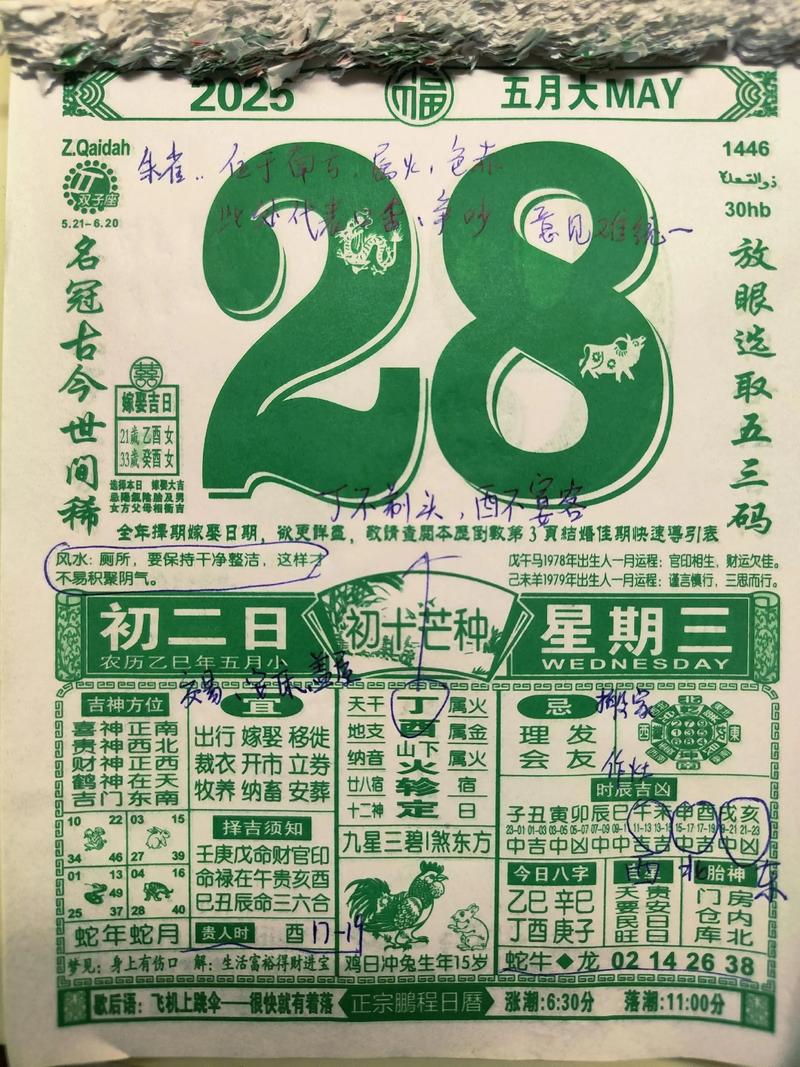 2025 福 五月大MAY
Z.Qaidah
双子座
5.21-6.20
1446
ذوالقعدة
30hb
朱雀：位于南方，属火，色赤
此外代表口舌、争吵，意见难统一
28
名冠古今世间稀
放眼选取五三码
囍
嫁娶吉日
21歲 乙酉 女
33歲 癸酉 女
選擇本日 嫁娶大吉
女方父母相衝吉
丁不剃头，酉不宴客
全年擇期嫁娶日期，欲更詳盡，敬請查閱本歷倒數第3頁結婚佳期快速導引表
风水：厕所，要保持干净整洁，这样才
不易积聚阴气。
戊午马1978年出生人一月运程：官印相生，财运欠佳。
己未羊1979年出生人一月运程：谨言慎行，三思而行。
初二日
农历乙巳年五月小
初十芒种
星期三
WEDNESDAY
吉神方位
喜神正南
贵神西北
财神正西
鹤神在天
吉门东南
交易、安床、盖屋
宜
出行 嫁娶 移徙
裁衣 开市 立券
牧养 纳畜 安葬
天干 丁 属火
地支 酉 属金
纳音 山下火 属火
廿八宿 轸 宿
十二神 定 日
九星三碧 煞东方
忌
搬家
理发
会友
作灶
时辰吉凶
子丑寅卯辰巳午未申酉戌亥
23-01 01-03 03-05 05-07 07-09 09-11 11-13 13-15 15-17 17-19 19-21 21-23
西 北 东
10 22 34 46
03 15 27 39
01 13 25 37 49
04 16 28 40
蛇年蛇月
择吉须知
壬庚戊命财官印
命禄在午贵亥酉
巳丑辰命三六合
贵人时 酉 17-19
鸡日冲兔生年15岁
今日八字
乙巳 辛巳
丁酉 庚子
天贵
要安
民日
旺日
胎神
门房
仓内
库北
蛇牛◆龙 02 14 26 38
梦见：身上有伤口 解：生活富裕得财进宝
歇后语：飞机上跳伞——很快就有着落
正宗鵬程日曆
涨潮:6:30分 落潮:11:00分